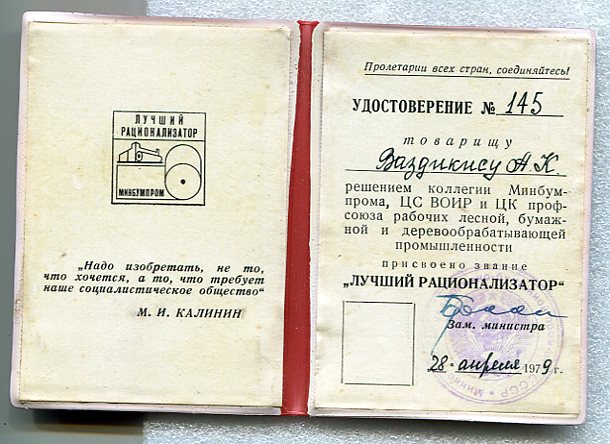 ЛУЧШИЙ
РАЦИОНАЛИЗАТОР
МИНБУМПРОМ
„Надо изобретать, не то,
что хочется, а то, что требует
наше социалистическое общество“
М. И. КАЛИНИН
Пролетарии всех стран, соединяйтесь!
УДОСТОВЕРЕНИЕ № 145
товарищу
Ваздикису А. К.
решением коллегии Минбум-
прома, ЦС ВОИР и ЦК проф-
союза рабочих лесной, бумаж-
ной и деревообрабатывающей
промышленности
присвоено звание
„ЛУЧШИЙ РАЦИОНАЛИЗАТОР“
Зам. министра
28 апреля 1979 г.